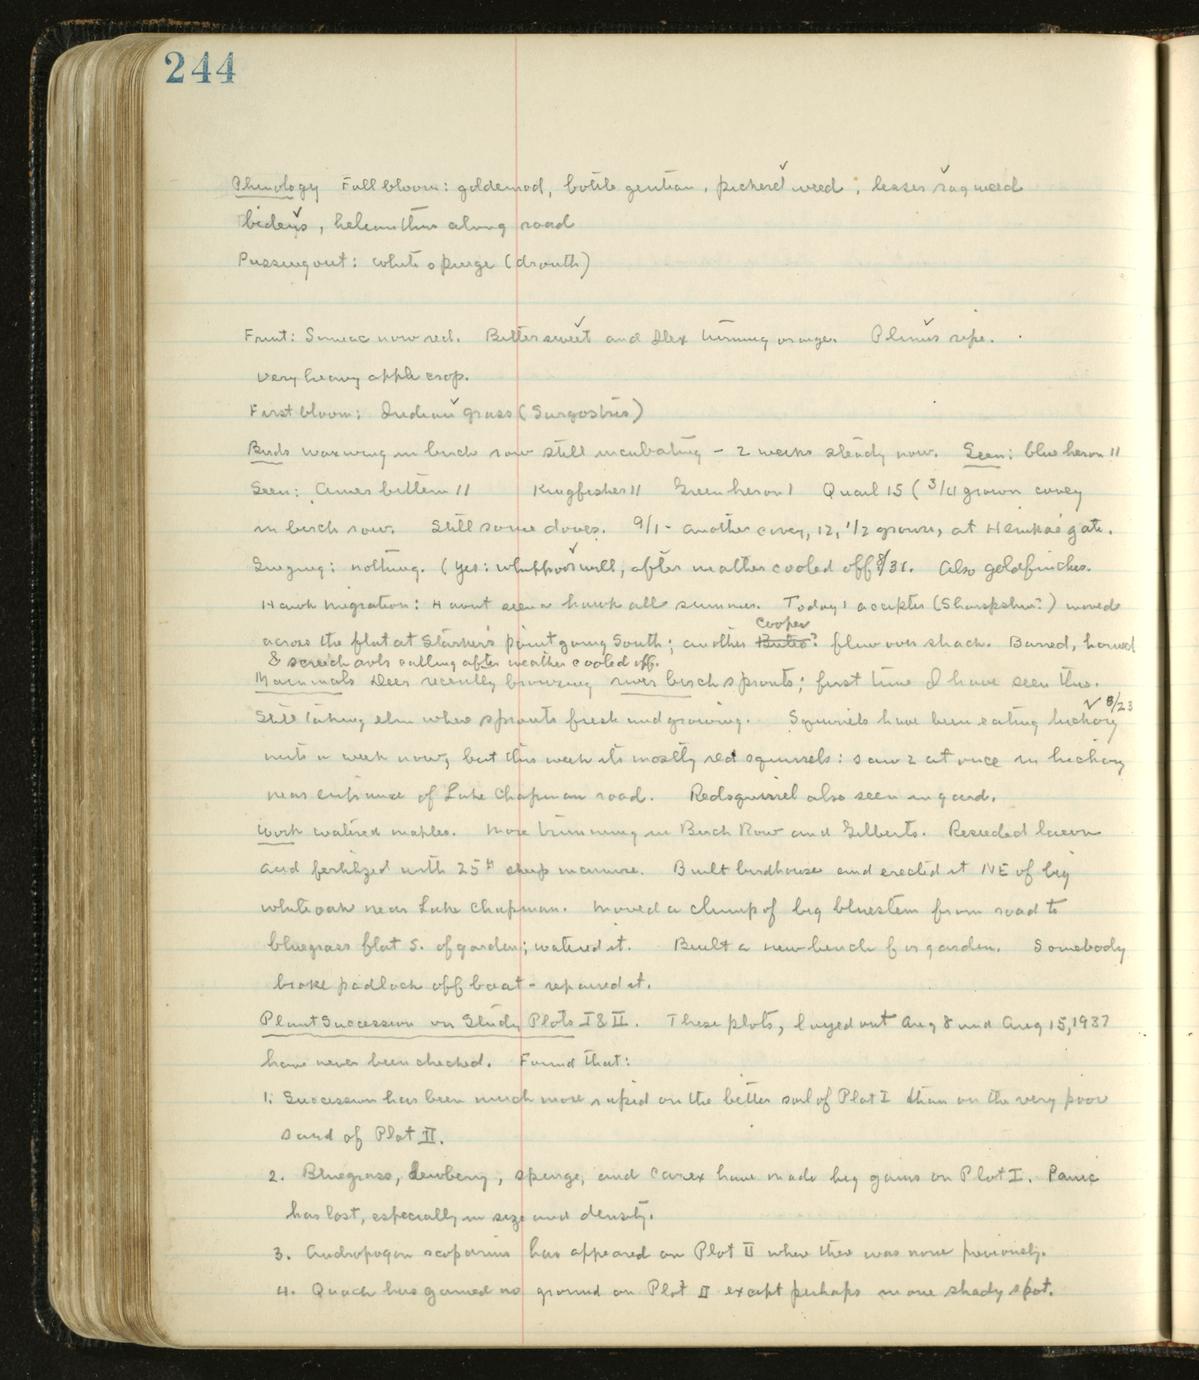 244
Phenology Fall bloom: goldenrod, bottle gentian, pickerel weed, lesser ragweed
bidens, helianthus along road
Passing out: white spurge (drouth)
Fruit: Sumac now red. Bittersweet and Ilex turning orange. Plums ripe.
Very heavy apple crop.
First bloom: Indian grass (Sorgastris)
Birds waxwing in birch row still incubating - 2 weeks steady now. Seen: blue heron 11
Seen: Amer bittern 11 Kingfisher 11 Green heron 1 Quail 15 (3/4 grown covey
in birch row. Still some doves. 9/1 - another covey, 12, 1/2 grown, at gate.
Singing: nothing. (Yes: whippoorwill, after weather cooled off 8/31. Also goldfinches.
Hawk migration: Havnt seen a hawk all summer. Today 1 accipter (Sharpshin?) moved
across the flat at point going South; another Cooper? flew over shack. Barred, horned
& screech owls calling after weather cooled off.
Mammals Deer recently browsing river birch sprouts; first time I have seen this.
Still taking elm where sprouts fresh and growing. Squirrels have been eating hickory 8/23
nuts a week now, but this week its mostly red squirrels: saw 2 at once in hickory
near entrance of Lake Chapman road. Redsquirrel also seen in yard.
Work watered maples. More trimming in Birch Row and Gilberts. Reseeded lawn
and fertilized with 25# sheep manure. Built birdhouse and erected it NE of big
white oak near Lake Chapman. Moved a clump of big bluestem from road to
bluegrass flat S. of garden; watered it. Built a new bench for garden. Somebody
broke padlock off boat - repaired it.
Plant Succession on Study Plots I & II. These plots, layed out Aug 8 and Aug 15, 1937
have never been checked. Found that:
1. Succession has been much more rapid on the better soil of Plot I than on the very poor
sand of Plot II.
2. Bluegrass, dewberry, spurge, and Carex have made big gains on Plot I. Panic
has lost, especially in size and density.
3. Andropogon scoparius has appeared on Plot II where there was none previously.
4. Quack has gained no ground on Plot II except perhaps in one shady spot.